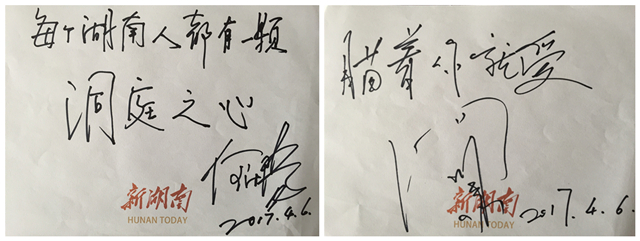 每个湖南人都有一颗
洞庭之心
新湖南
HUNAN TODAY
2017.4.6.
瞄着你就爱
新湖南
2017.4.6.